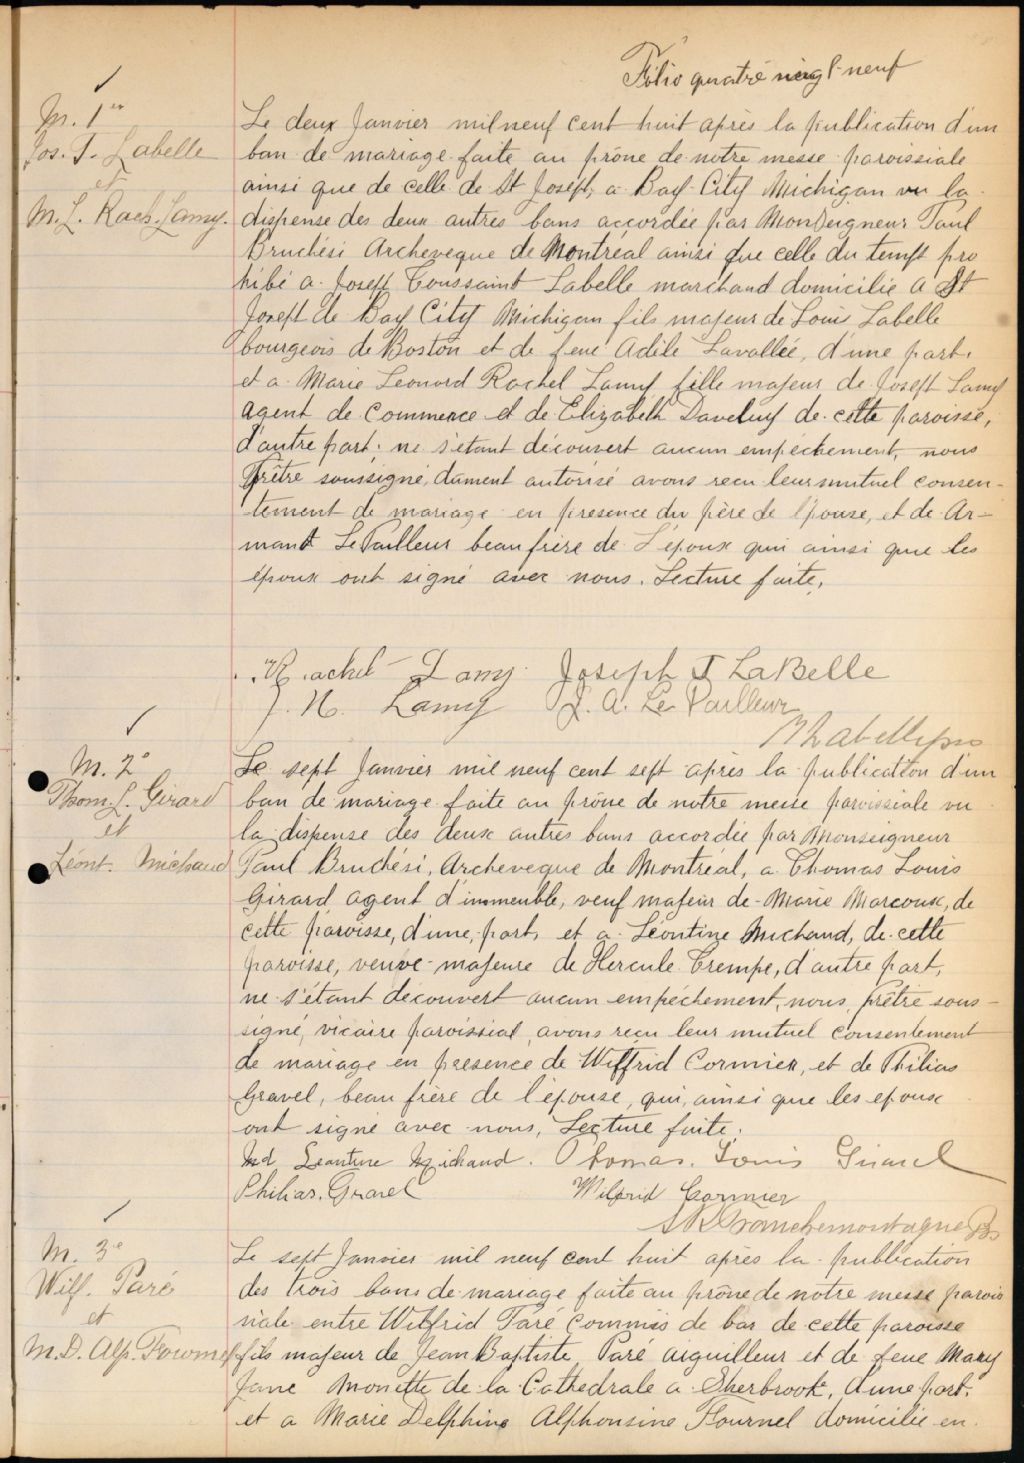 Folio quatre vingt-neuf
M. 1er
Jos. T. Labelle
et
M. L. Rach. Lamy.
Le deux Janvier mil neuf cent huit après la publication d'un
ban de mariage faite au prône de notre messe paroissiale
ainsi que de celle de St Joseph, a Bay-City Michigan vu la
dispense des deux autres bans accordée par Monseigneur Paul
Bruchési Archeveque de Montréal ainsi que celle du temps pro
hibé a Joseph Toussaint Labelle marchand domicilié a St
Joseph de Bay City Michigan fils majeur de Louis Labelle
bourgeois de Boston et de feue Adèle Lavallée, d'une part.
et a Marie Leonard Rachel Lamy fille majeur de Joseph Lamy
agent de commerce et de Elizabeth Daveluy de cette paroisse,
d'autre part; ne s'étant découvert aucun empéchement, nous
Prêtre soussigné, dument autorisé avons recu leur mutuel consen-
-tement de mariage en presence du père de l'épouse, et de Ar-
mand LePailleur beau frère de L'époux qui ainsi que les
époux ont signé avec nous. Lecture faite,
Rachel Lamy. Joseph T LaBelle
J. N. Lamy J. A. Le Pailleur
M. 2e
Thom. L. Girard
et
Léont. Michaud
Le sept Janvier mil neuf cent sept après la publication d'un
ban de mariage faite au prône de notre messe paroissiale vu
la dispense des deux autres bans accordée par Monseigneur
Paul Bruchési, Archeveque de Montréal, a Thomas Louis
Girard agent d'immeuble, veuf majeur de Marie Marcoux, de
cette paroisse, d'une part, et a Léontine Michaud, de cette
paroisse, veuve majeure de Hercule Trempe, d'autre part,
ne s'étant découvert aucun empéchement, nous, prêtre sous-
signé, vicaire paroissial, avons reçu leur mutuel consentement
de mariage en presence de Wilfrid Cormier, et de Philias
Gravel, beau frère de l'épouse, qui, ainsi que les epoux
ont signé avec nous, Lecture faite.
Md Leontine Michaud. Thomas. Louis Girard
Philias. Gravel Wilfrid Cormier
M. 3e
Wilf. Paré
et
M. D. Alp. Fournel
Le sept Janvier mil neuf cent huit après la publication
des trois bans de mariage faite au prône de notre messe parois
siale entre Wilfrid Paré commis de bar de cette paroisse
fils majeur de Jean Baptiste Paré aiguilleur et de feue Mary
Jane Monette de la Cathedrale a Sherbrook, d'une part,
et a Marie Delphine Alphonsine Fournel domicilié en